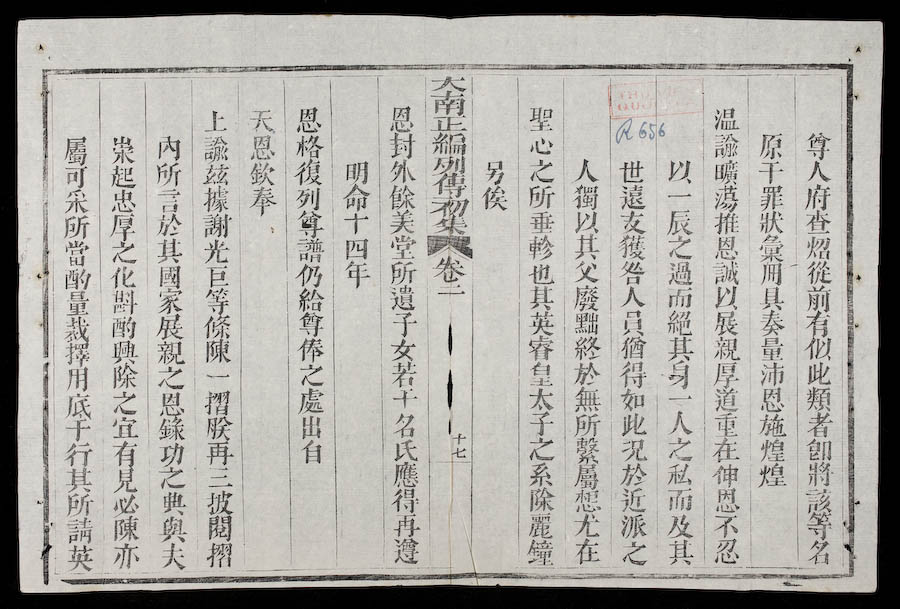 尊人府查炤從前有似此類者卽將該等名
原干罪狀彙冊具奏量沛恩施煌煌
温諭曠蕩推恩誠以展親厚道重在伸恩不忍
以一辰之過而絕其身一人之私而及其
世遠友獲咎人員猶得如此况於近派之
人獨以其父廢黜終於無所繫屬想尤在
聖心之所垂軫也其英睿皇太子之系除麗鐘
另俟
大南正編列傳初集 卷二 十七
恩封外餘美堂所遺子女若干名氏應得再遵
明命十四年
恩格復列尊譜仍給尊俸之處出自
天恩欽奉
上諭玆據謝光巨等條陳一摺朕再三披閱摺
內所言於其國家展親之恩錄功之典與夫
崇起忠厚之化斟酌興除之宜有見必陳亦
屬可采所當酌量裁擇用底于行其所請英
R 656